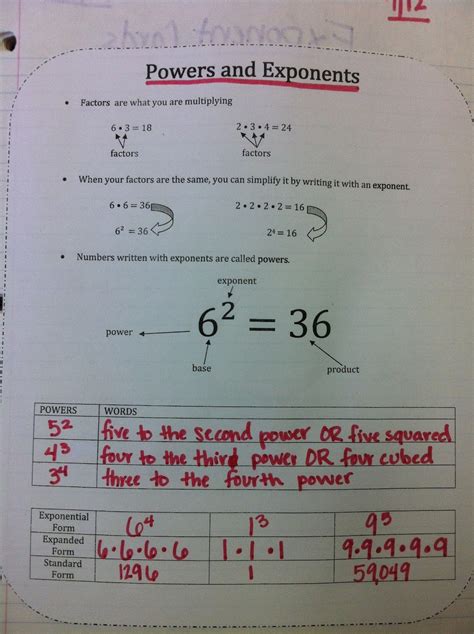 1/12
Powers and Exponents
• Factors are what you are multiplying
6 • 3 = 18 2 • 3 • 4 = 24
factors factors
• When your factors are the same, you can simplify it by writing it with an exponent.
6 • 6 = 36 2 • 2 • 2 • 2 = 16
6² = 36 2⁴ = 16
• Numbers written with exponents are called powers.
exponent
6² = 36
power
base product
POWERS WORDS
5² five to the second power OR five squared
4³ four to the third power OR four cubed
3⁴ three to the fourth power
Exponential Form 6⁴ 1³ 9⁵
Expanded Form 6•6•6•6 1•1•1 9•9•9•9•9
Standard Form 1296 1 59,049